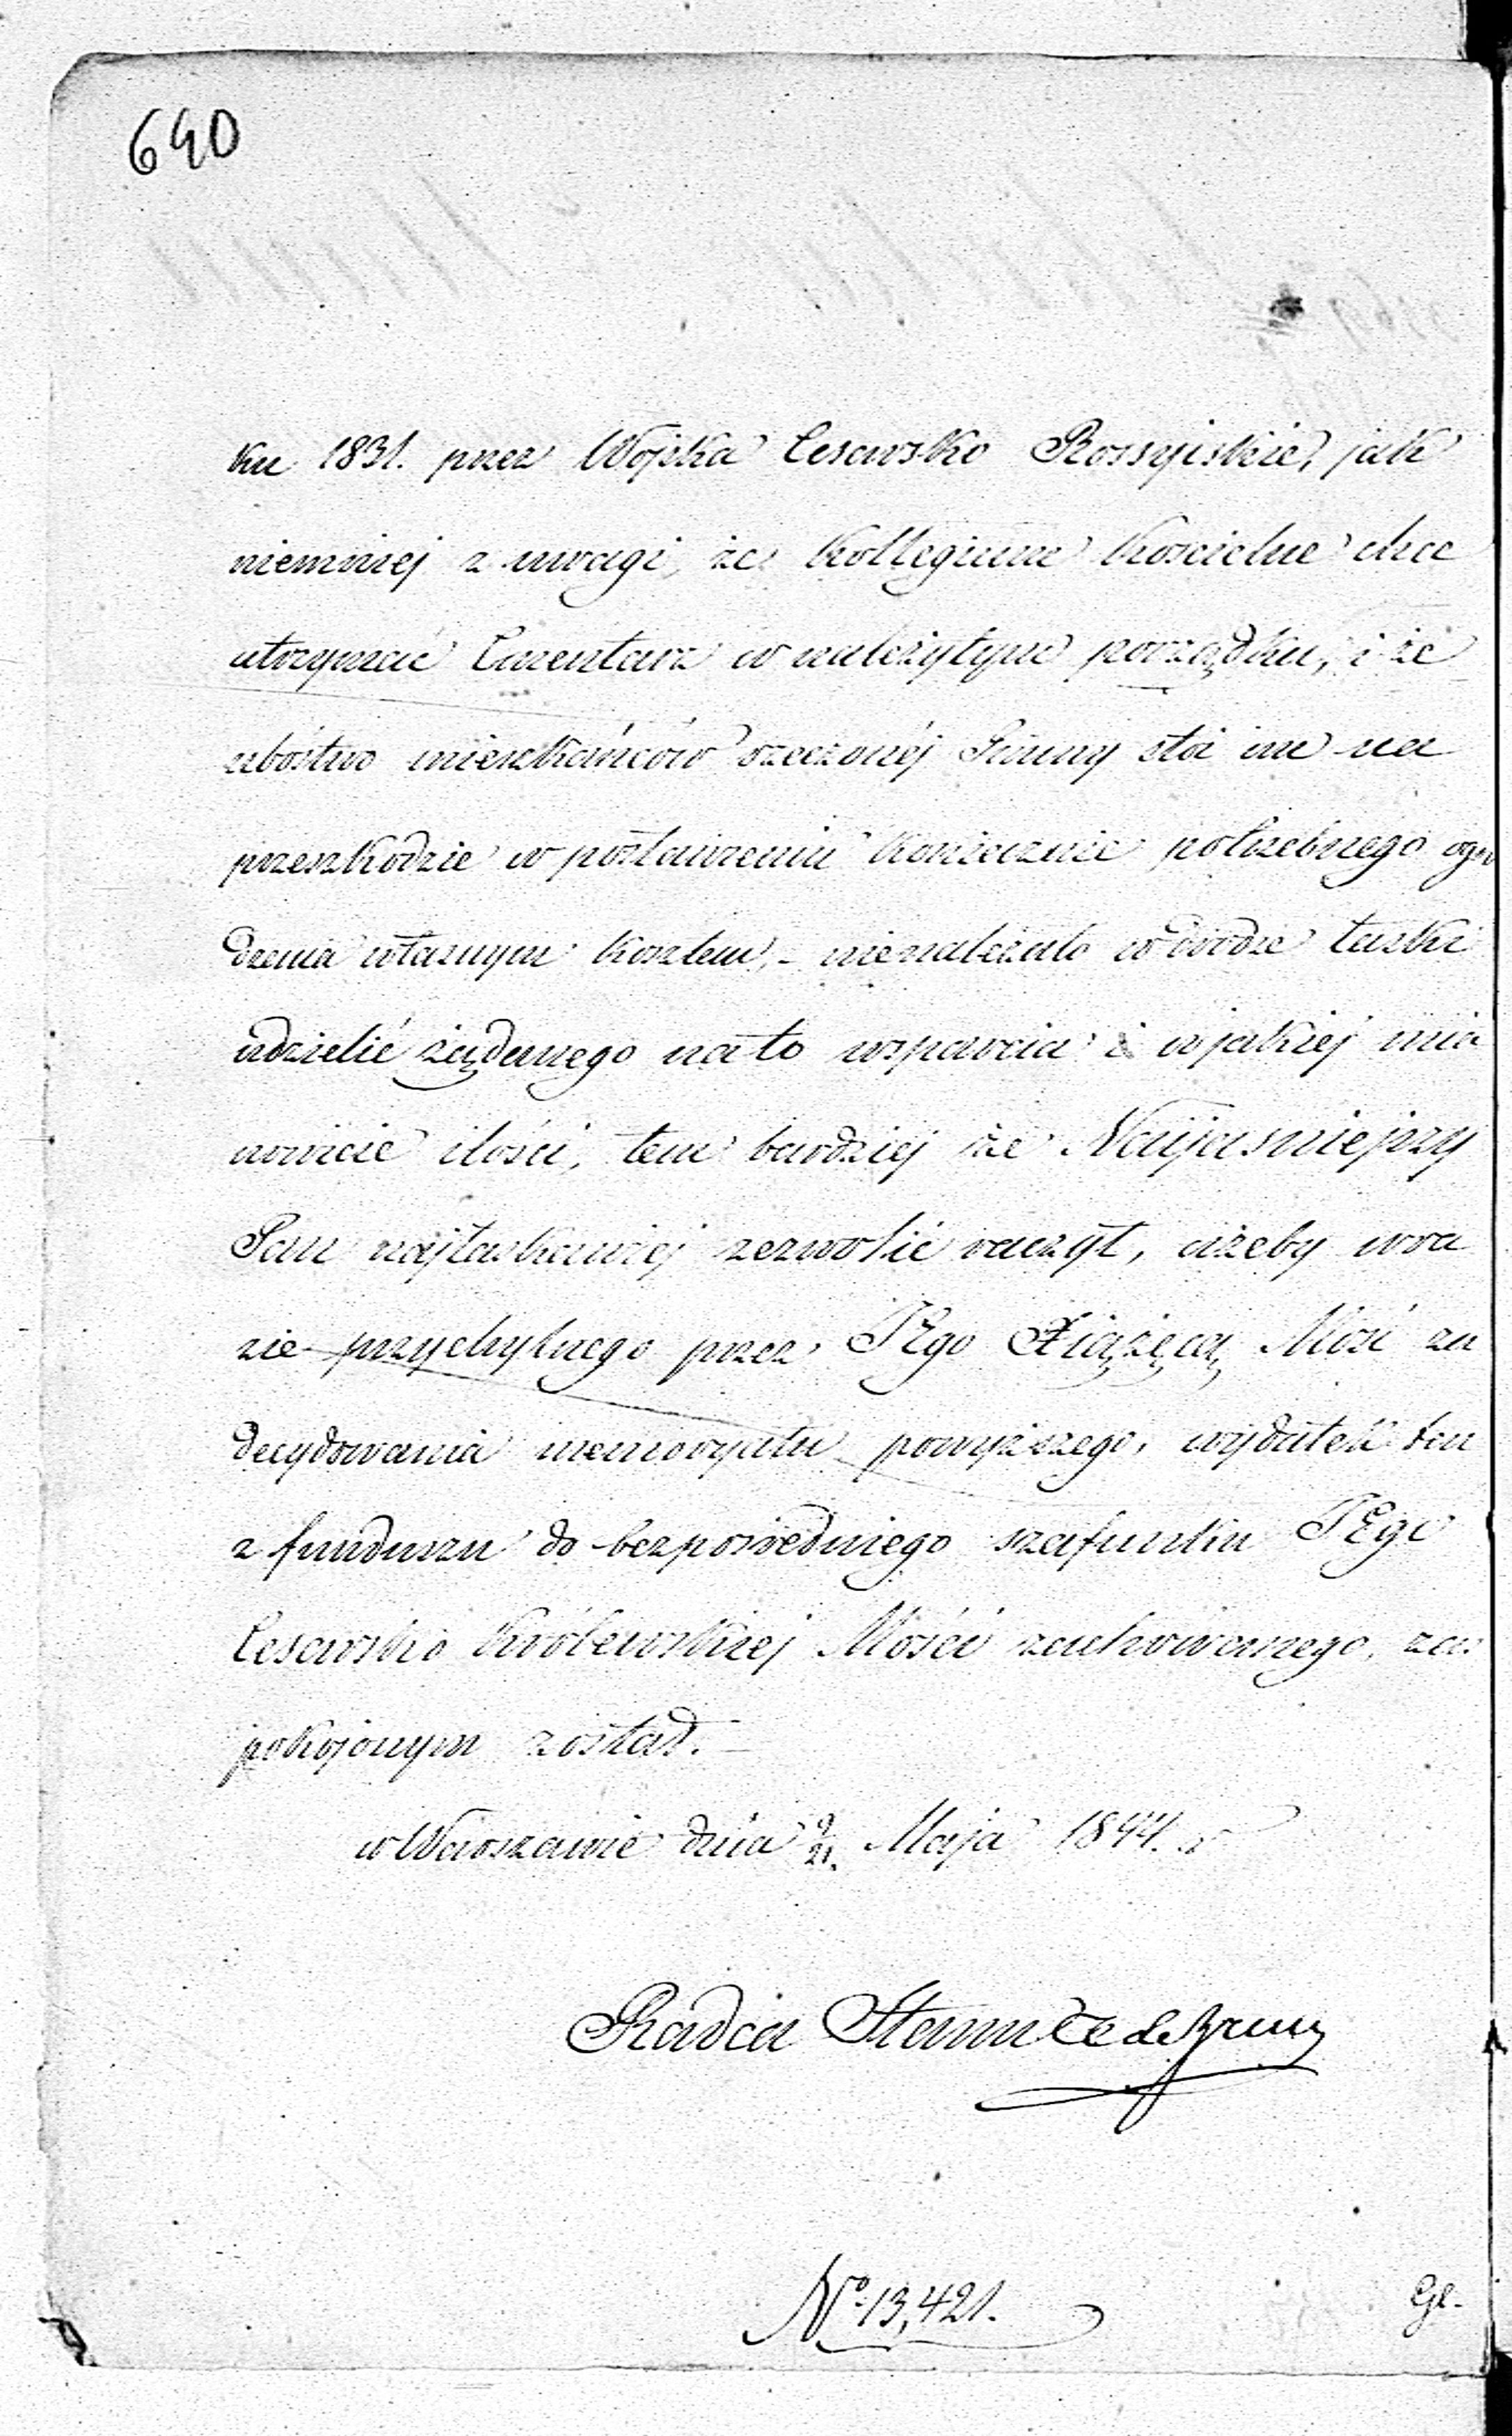 640
ku 1831. przez Wojska Cesarsko Rossyiskie, jak
niemniej z uwagi, że Kollegium Kościelne chce
utrzymać Cmentarz w należytym porządku, i że
ubóstwo mieszkańców rzeczonéj Gminy stoi im na
przeszkodzie w postawieniu koniecznie potrzebnego ogro
dzenia własnym kosztem, - nienależało w drodze łaski
udzielić żądanego na to wsparcia i w jakiej mia
nowicie ilości, tem bardziej że Najjaśniejszy
Pan najłaskawiej zezwolić raczył, ażeby w ra
zie przychylnego przez JEgo Xiążęcą Mość za
decydowania memoryału powyższego, wydatek ten
z funduszu do bezpośredniego szafunku JEgo
Cesarsko Królewskiej Mości zachowanego, zas
pokojonym został. -
w Warszawie dnia 9/21. Maja 1844. r
Radca Stanu
No. 13,421.
Gl.